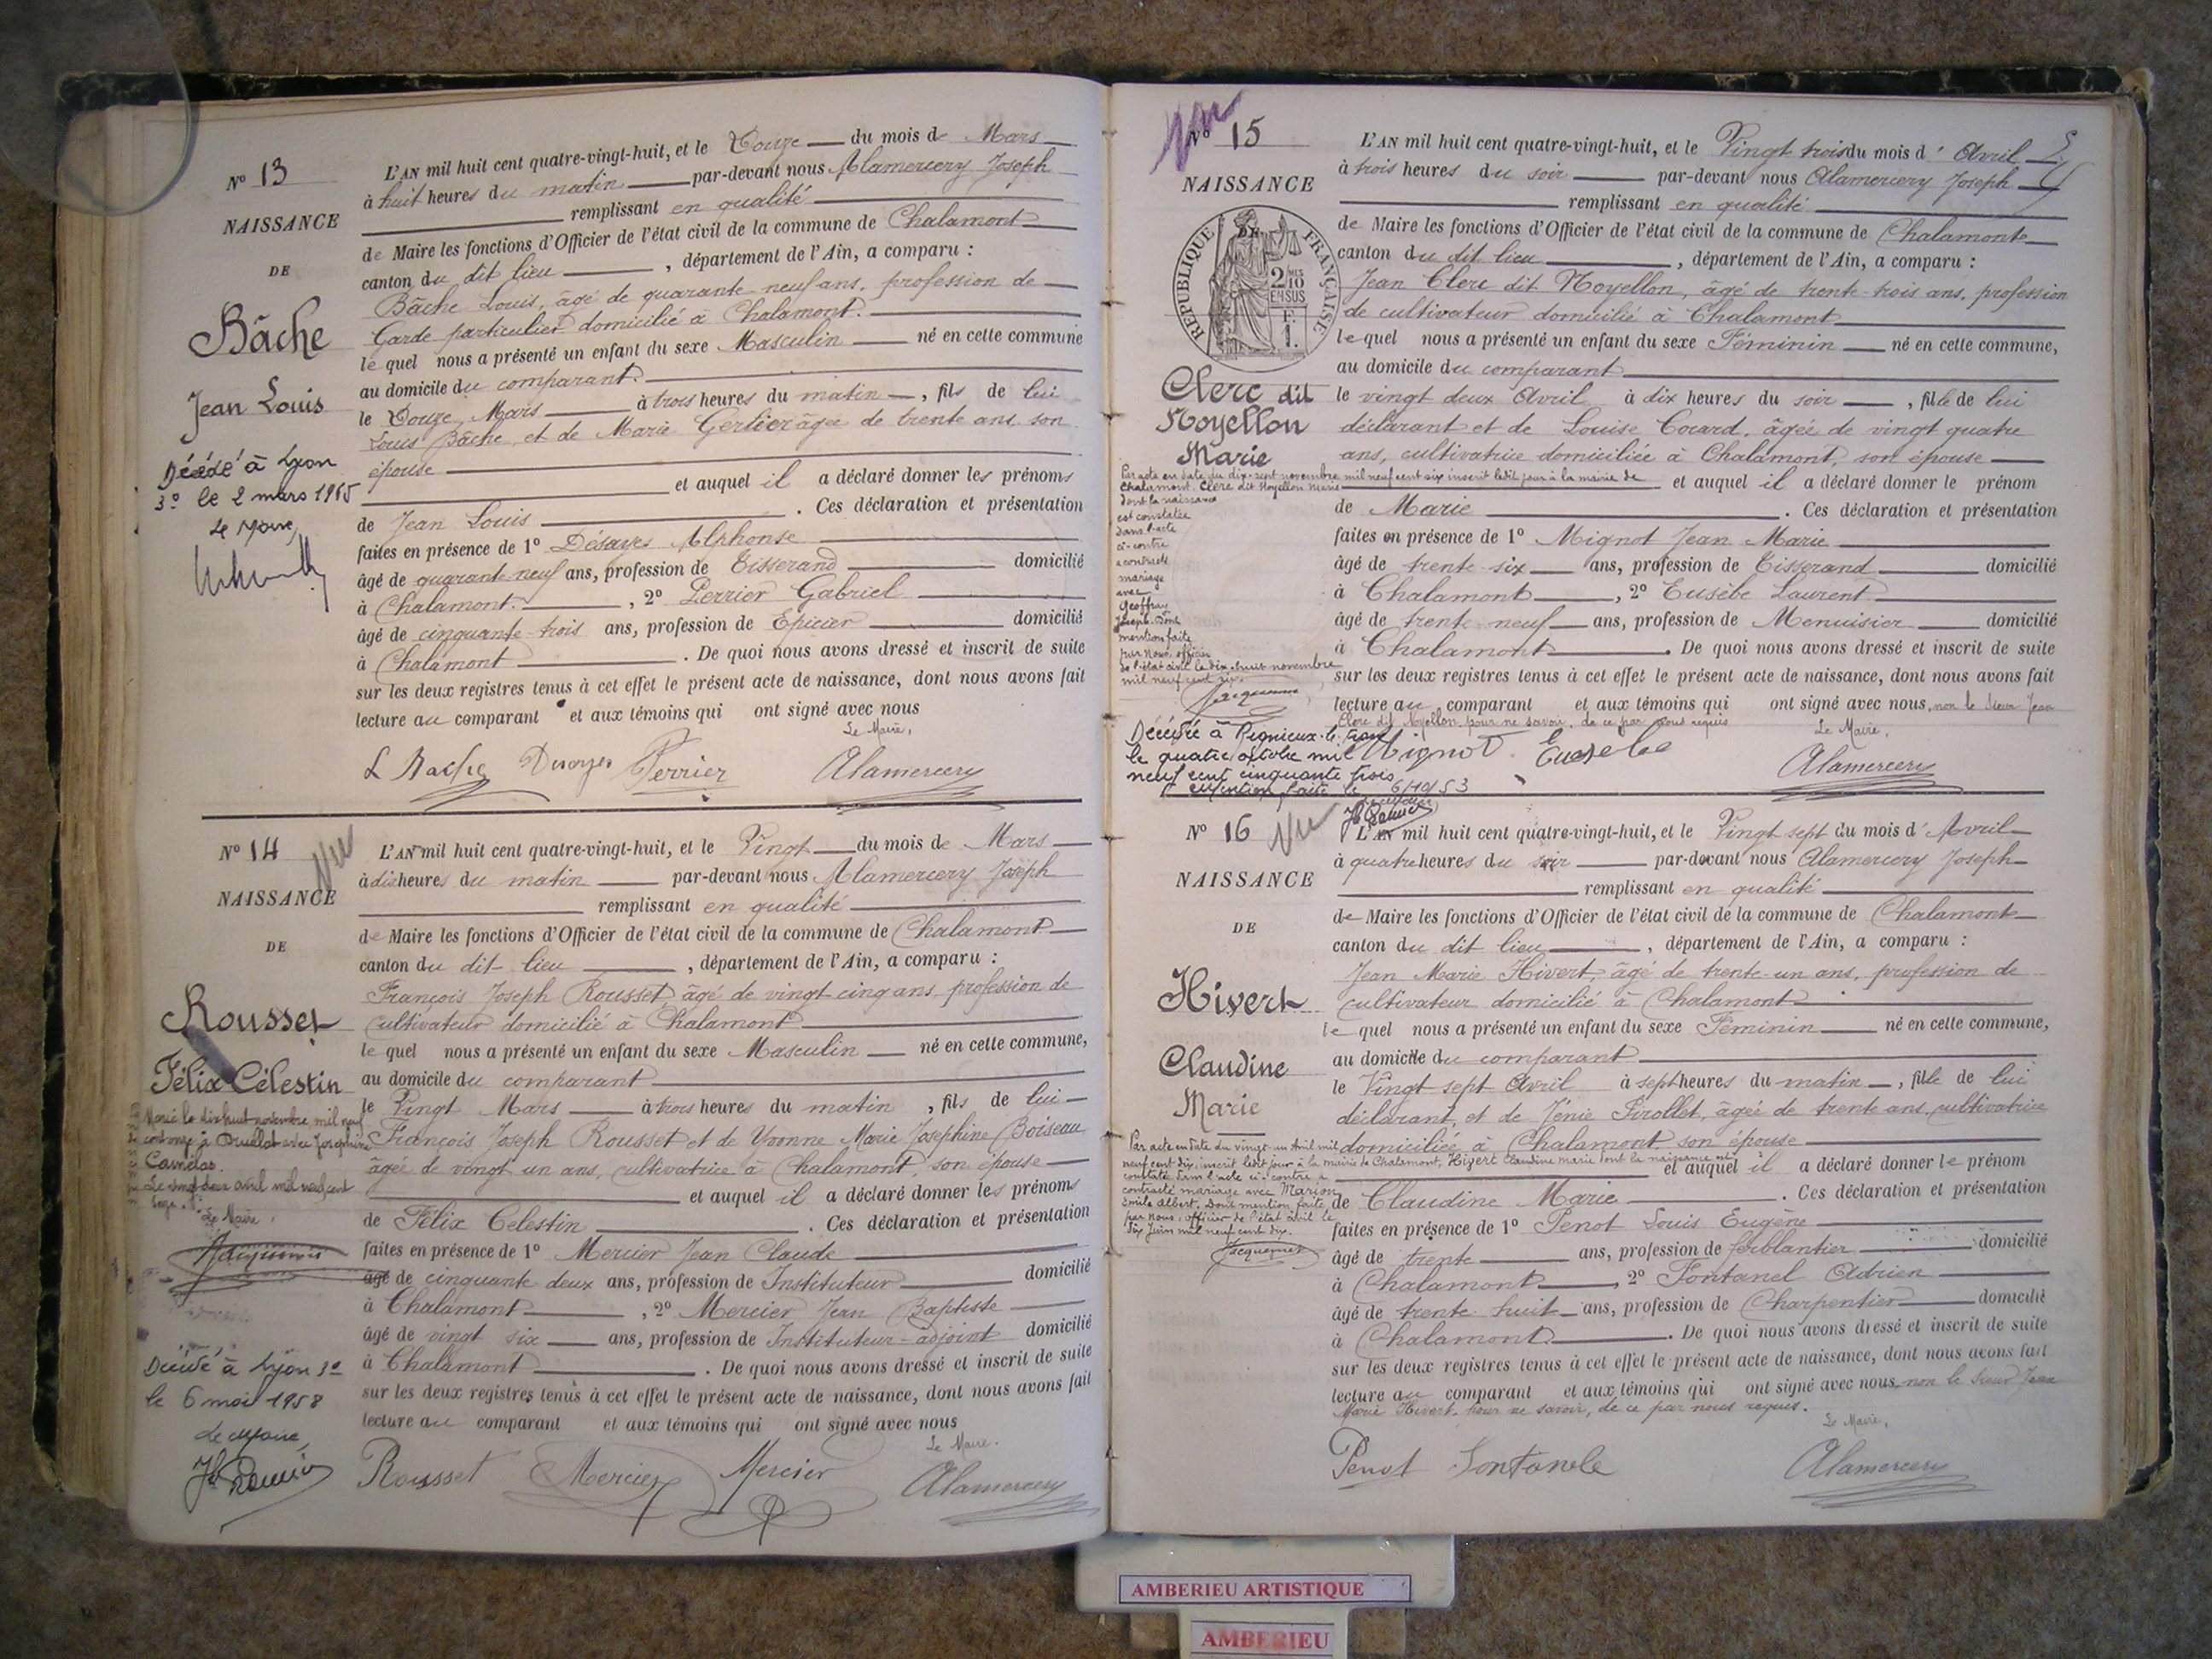 Nº 13
NAISSANCE
DE
Bâche
Jean Louis
Décédé à Lyon
3º le 2 mars 1965
Le Maire,
L'AN mil huit cent quatre-vingt-huit, et le Douze du mois de Mars
à huit heures du matin par-devant nous Alamercery Joseph
remplissant en qualité
de Maire les fonctions d'Officier de l'état civil de la commune de Chalamont
canton du dit lieu, département de l'Ain, a comparu :
Bâche Louis, âgé de quarante neuf ans, profession de
Garde particulier domicilié à Chalamont.
le quel nous a présenté un enfant du sexe Masculin né en cette commune
au domicile du comparant.
le Douze Mars à trois heures du matin, fils de lui
Louis Bâche et de Marie Gerlier âgée de trente ans son
épouse
et auquel il a déclaré donner les prénoms
de Jean Louis. Ces déclaration et présentation
faites en présence de 1º Désayes Alphonse
âgé de quarante-neuf ans, profession de Tisserand domicilié
à Chalamont., 2º Perrier Gabriel
âgé de cinquante-trois ans, profession de Epicier domicilié
à Chalamont. De quoi nous avons dressé et inscrit de suite
sur les deux registres tenus à cet effet le présent acte de naissance, dont nous avons fait
lecture au comparant et aux témoins qui ont signé avec nous
Le Maire,
L Bache Perrier Alamercery
Nº 14 Vu
NAISSANCE
DE
Rousset
Félix Célestin
Marié le dix huit novembre mil neuf
cent onze à Druillat avec Josephine
Le vingt deux avril mil neuf cent
Le Maire,
Décédé à Lyon 3º
le 6 mai 1958
Le Maire,
L'AN mil huit cent quatre-vingt-huit, et le Vingt du mois de Mars
à dix heures du matin par-devant nous Alamercery Joseph
remplissant en qualité
de Maire les fonctions d'Officier de l'état civil de la commune de Chalamont
canton du dit lieu, département de l'Ain, a comparu :
François Joseph Rousset âgé de vingt cinq ans, profession de
cultivateur domicilié à Chalamont
le quel nous a présenté un enfant du sexe Masculin né en cette commune,
au domicile du comparant
le Vingt Mars à trois heures du matin, fils de lui
François Joseph Rousset et de Yvonne Marie Josephine Boiseau
âgée de vingt un ans, cultivatrice à Chalamont, son épouse
et auquel il a déclaré donner les prénoms
de Félix Celestin. Ces déclaration et présentation
faites en présence de 1º Mercier Jean Claude
âgé de cinquante deux ans, profession de Instituteur domicilié
à Chalamont, 2º Mercier Jean Baptiste
âgé de vingt six ans, profession de Instituteur-adjoint domicilié
à Chalamont. De quoi nous avons dressé et inscrit de suite
sur les deux registres tenus à cet effet le présent acte de naissance, dont nous avons fait
lecture au comparant et aux témoins qui ont signé avec nous
Le Maire.
Rousset Mercier Mercier Alamercery
Vu
Nº 15
NAISSANCE
REPUBLIQUE FRANÇAISE
2/10 EN SUS
F.
1.
Clerc dit
Noyellon
Marie
Par acte en date du dix-sept novembre mil neuf cent six inscrit ledit jour à la mairie de
Chalamont. Clerc dit Noyellon Marie
dont la naissance
est constatée
dans l'acte
ci-contre
a contracté
mariage
avec
Geoffray
Joseph. Dont
mention faite
par Nous, officier
de l'état civil le dix-huit novembre
mil neuf cent six.
Jacquemet
Décédée à Rignieux-le-franc
le quatre octobre mil
neuf cent cinquante trois
Mention faite le 6/10/53
L'AN mil huit cent quatre-vingt-huit, et le Vingt trois du mois d'Avril
à trois heures du soir par-devant nous Alamercery Joseph
remplissant en qualité
de Maire les fonctions d'Officier de l'état civil de la commune de Chalamont
canton du dit lieu, département de l'Ain, a comparu :
Jean Clerc dit Noyellon, âgé de trente-trois ans, profession
de cultivateur domicilié à Chalamont
le quel nous a présenté un enfant du sexe Féminin né en cette commune,
au domicile du comparant
le vingt deux Avril à dix heures du soir, fille de lui
déclarant et de Louise Cocard, âgée de vingt quatre
ans, cultivatrice domiciliée à Chalamont, son épouse
et auquel il a déclaré donner le prénom
de Marie. Ces déclaration et présentation
faites en présence de 1º Mignot Jean Marie
âgé de trente-six ans, profession de Tisserand domicilié
à Chalamont, 2º Eusèbe Laurent
âgé de trente-neuf ans, profession de Menuisier domicilié
à Chalamont. De quoi nous avons dressé et inscrit de suite
sur les deux registres tenus à cet effet le présent acte de naissance, dont nous avons fait
lecture au comparant et aux témoins qui ont signé avec nous, non le sieur Jean
Clerc dit Noyellon pour ne savoir, de ce par nous requis
Le Maire,
Mignot Eusebe Alamercery
Nº 16 Vu
NAISSANCE
DE
Hivert
Claudine
Marie
Par acte en date du vingt-un Avril mil
neuf cent dix, inscrit ledit jour à la mairie de Chalamont, Hivert Claudine Marie dont la naissance est
constatée dans l'acte ci-contre a
contracté mariage avec Marion
Emile Albert. Dont mention faite
par nous, officier de l'état civil le
dix Juin mil neuf cent dix.
Jacquemet
L'AN mil huit cent quatre-vingt-huit, et le Vingt sept du mois d'Avril
à quatre heures du soir par-devant nous Alamercery Joseph
remplissant en qualité
de Maire les fonctions d'Officier de l'état civil de la commune de Chalamont
canton du dit lieu, département de l'Ain, a comparu :
Jean Marie Hivert, âgé de trente-un ans, profession de
cultivateur domicilié à Chalamont
le quel nous a présenté un enfant du sexe Féminin né en cette commune,
au domicile du comparant
le Vingt sept Avril à sept heures du matin, fille de lui
déclarant, et de Jénie Pirollet, âgée de trente ans, cultivatrice
domiciliée à Chalamont son épouse
et auquel il a déclaré donner le prénom
de Claudine Marie. Ces déclaration et présentation
faites en présence de 1º Penot Louis Eugène
âgé de trente ans, profession de ferblantier domicilié
à Chalamont, 2º Fontanel Adrien
âgé de trente huit ans, profession de Charpentier domicilié
à Chalamont. De quoi nous avons dressé et inscrit de suite
sur les deux registres tenus à cet effet le présent acte de naissance, dont nous avons fait
lecture au comparant et aux témoins qui ont signé avec nous, non le sieur Jean
Marie Hivert, pour ne savoir, de ce par nous requis.
Le Maire,
Penot Fontanele Alamercery
AMBERIEU ARTISTIQUE
AMBERIEU